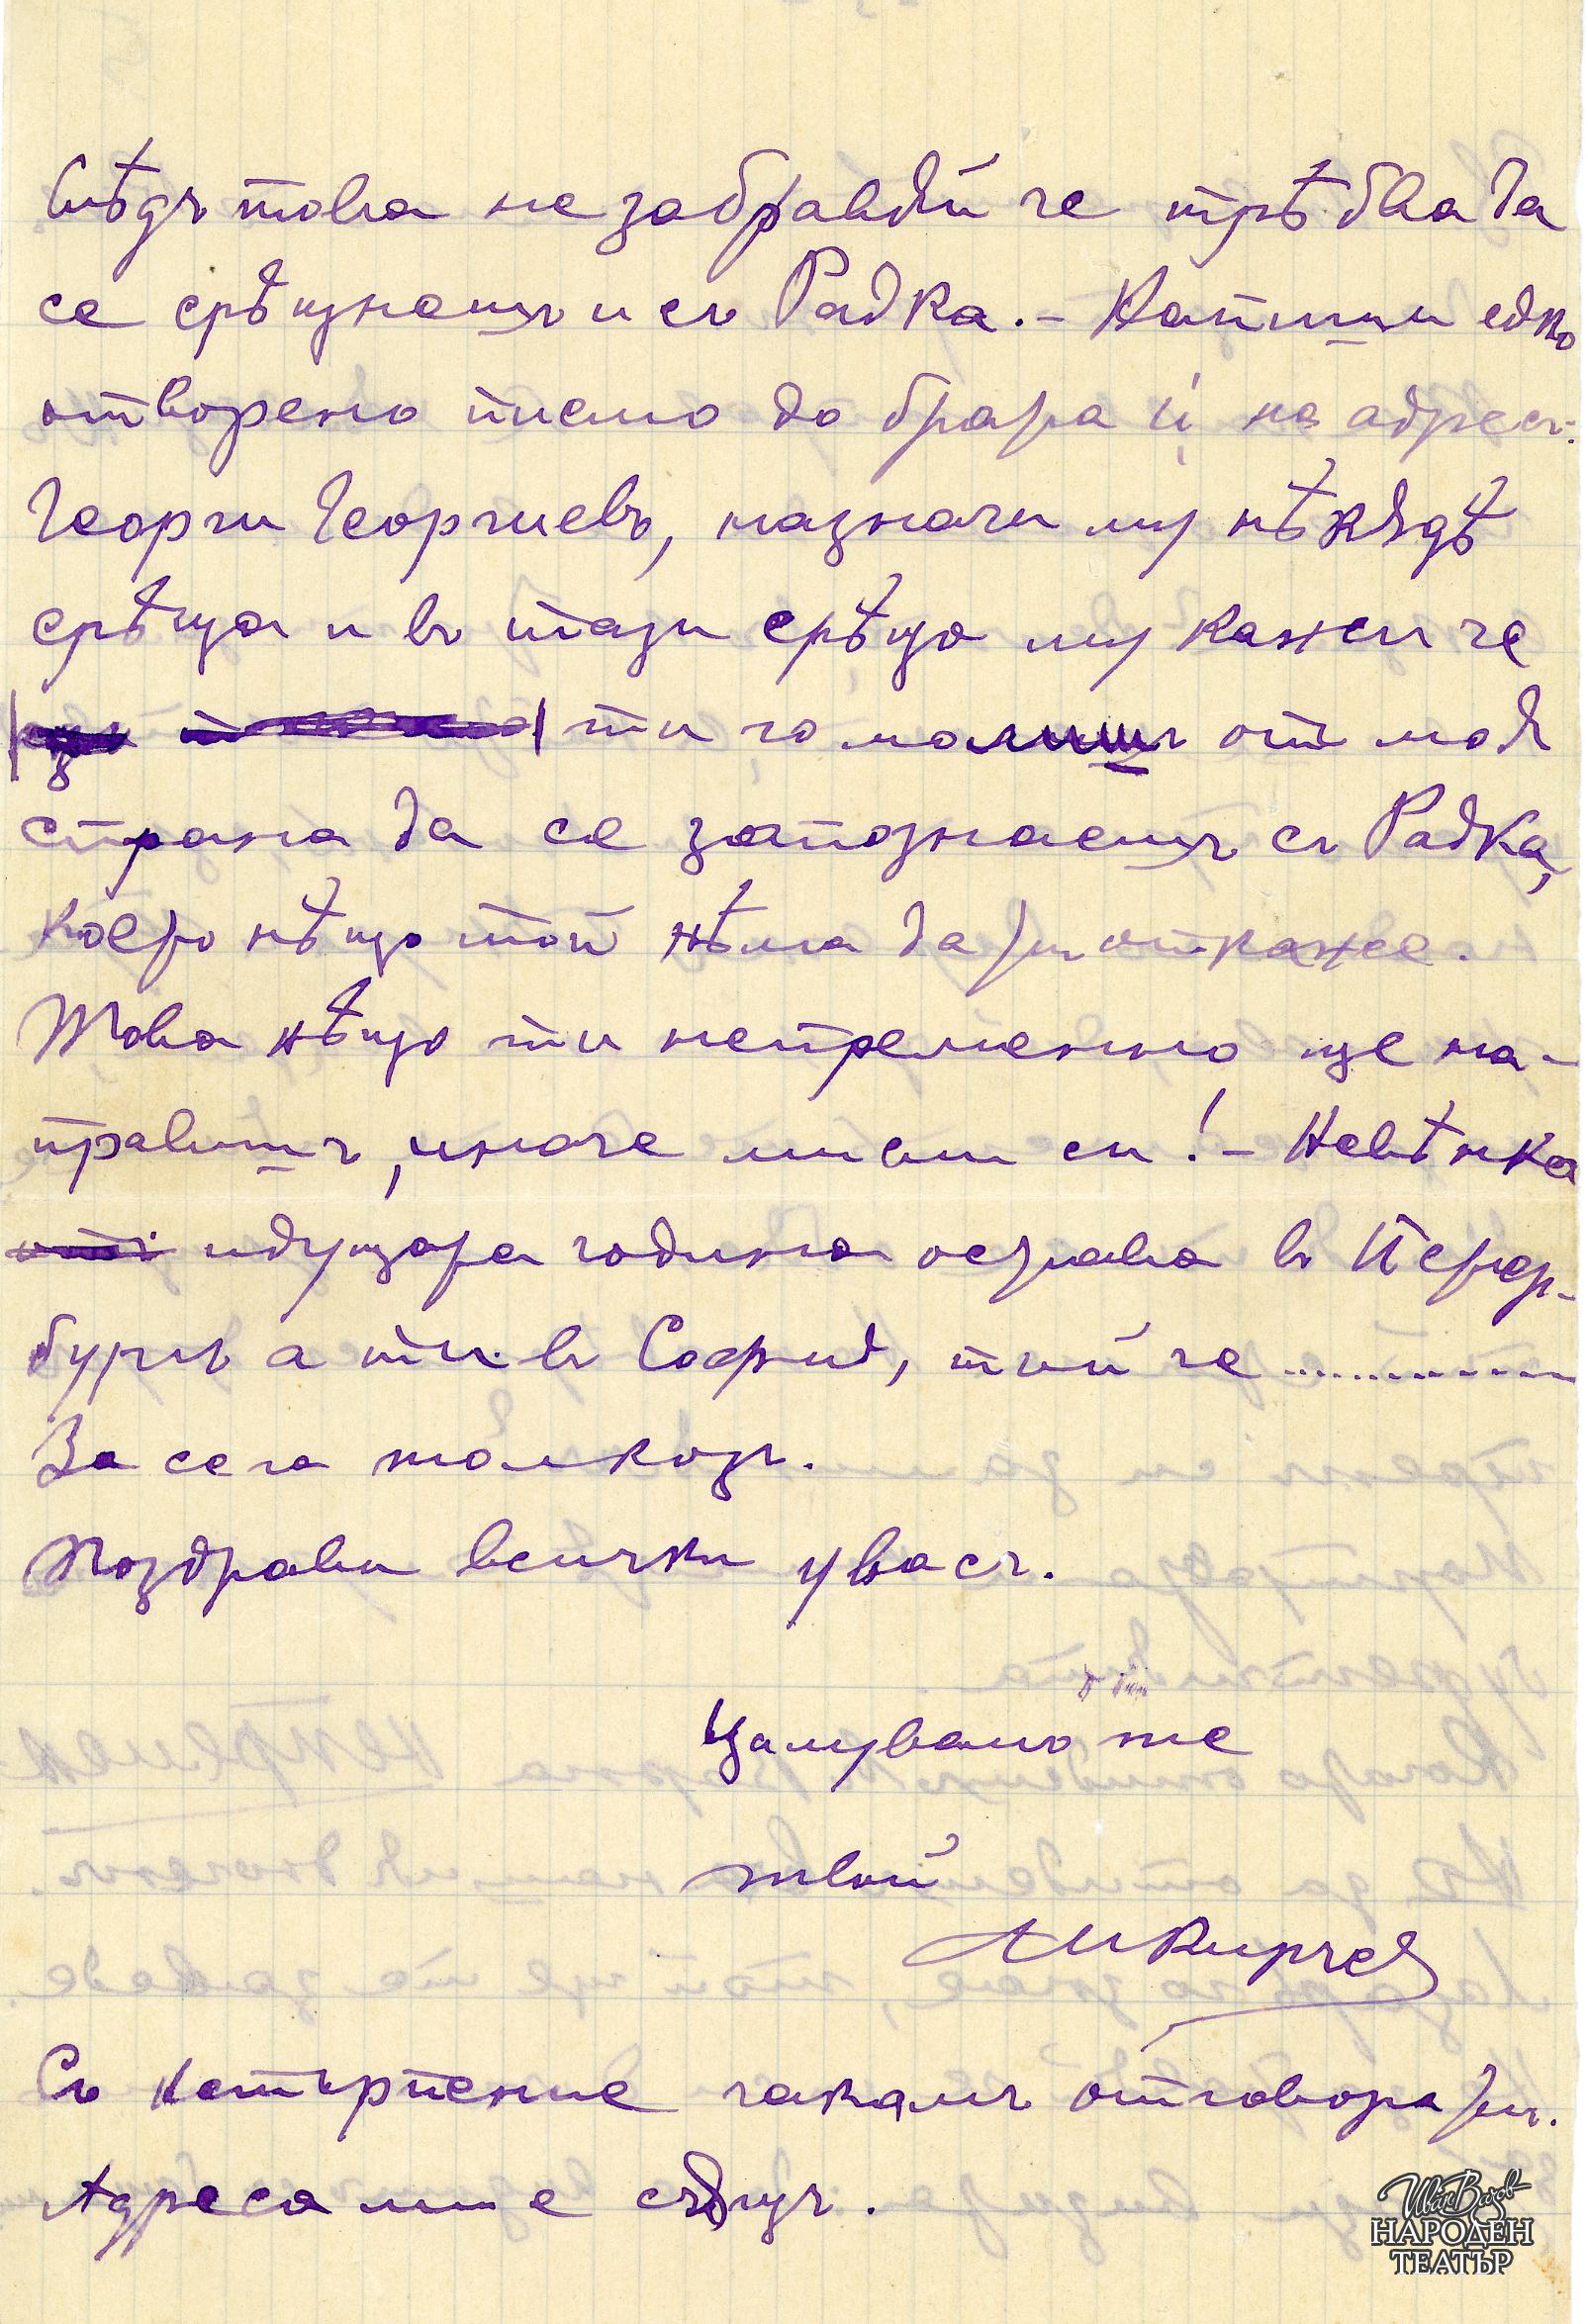 Слѣдъ това не забравяй че трѣбва да
се срѣщнешъ и съ Радка. – Напиши едно
отворено писмо до брата ѝ на адресъ:
Георги Георгиевъ, назначи му нѣкѫдѣ
срѣща и въ тази срѣща му кажи че
ти го молишъ отъ моя
страна да се запознаешъ съ Радка,
което нѣщо той нѣма да ти откаже.
Това нѣщо ти непременно ще на-
правишъ, иначе мисли си! – Невѣнка
идущата година остава въ Петер-
бургъ а ти въ София, тъй че ............
За сега толкозъ.
Поздрави всички у васъ.
Цалувамъ те
твой
А Кирчев
Съ нетърпение чакамъ отговора ти.
Адреса ми е сѫщъ.
Иван Вазов
НАРОДЕН
ТЕАТЪР